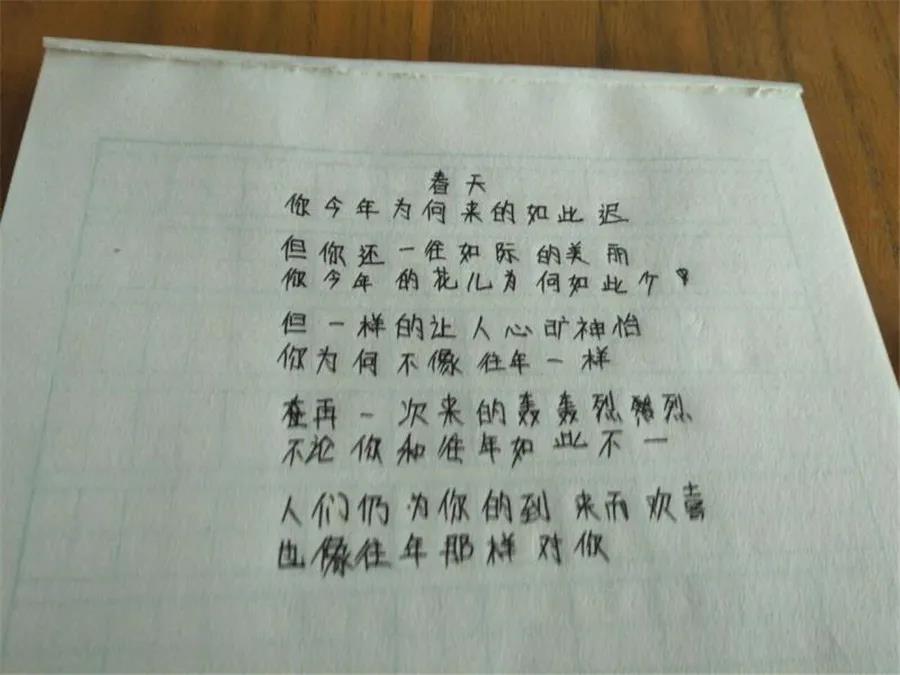 春天
你今年为何来的如此迟
但你还一往如际的美丽
你今年的花儿为何如此个
但一样的让人心旷神怡
你为何不像往年一样
再一次来的轰轰烈烈
不论你和往年如此不一
人们仍为你的到来而欢喜
也像往年那样对你